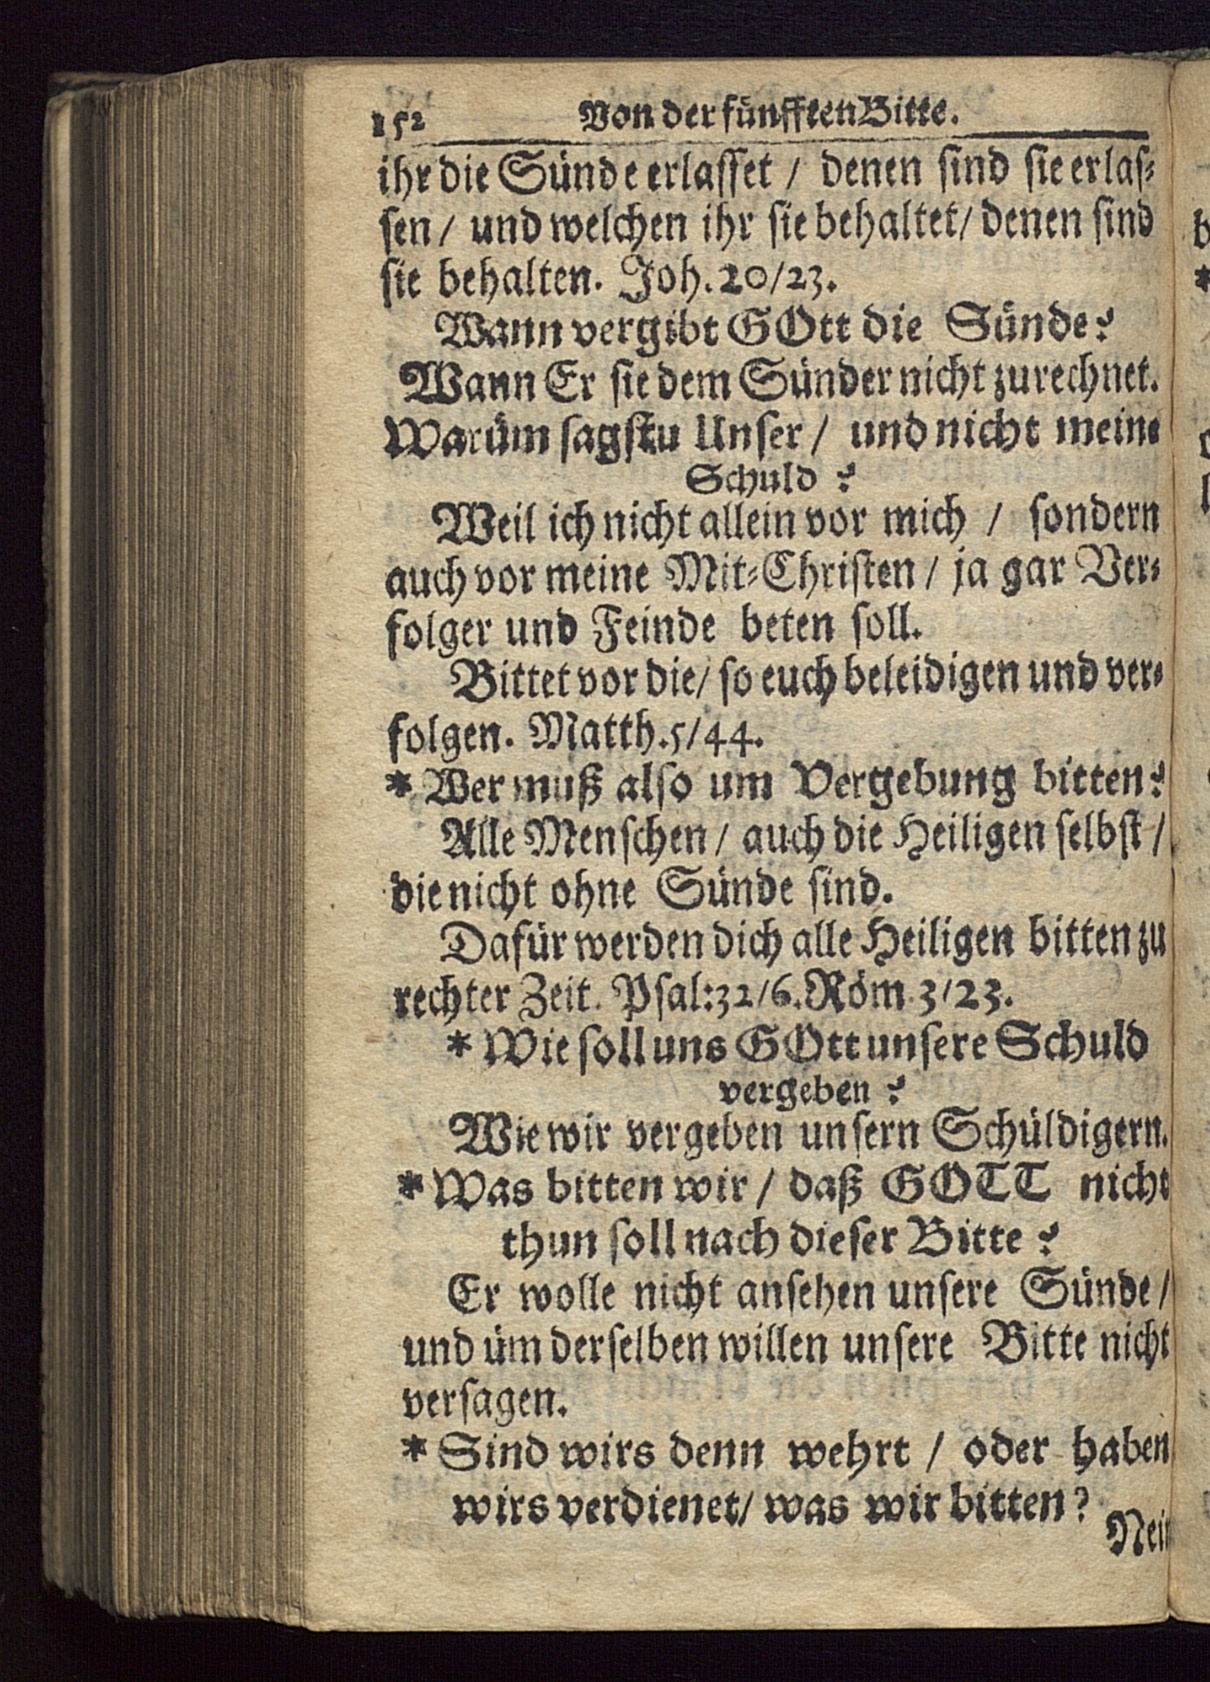 152 Von der fünfften Bitte.
ihr die Sünde erlasset / denen sind sie erlas-
sen / und welchen ihr sie behaltet / denen sind
sie behalten. Joh. 20/23.
Wann vergibt GOtt die Sünde?
Wann Er sie dem Sünder nicht zurechnet.
Warüm sagstu Unser / und nicht meine
Schuld?
Weil ich nicht allein vor mich / sondern
auch vor meine Mit-Christen / ja gar Ver-
folger und Feinde beten soll.
Bittet vor die / so euch beleidigen und ver-
folgen. Matth. 5/44.
* Wer muß also um Vergebung bitten?
Alle Menschen / auch die Heiligen selbst /
die nicht ohne Sünde sind.
Dafür werden dich alle Heiligen bitten zu
rechter Zeit. Psal: 32/6. Röm. 3/23.
* Wie soll uns GOtt unsere Schuld
vergeben?
Wie wir vergeben unsern Schüldigern.
* Was bitten wir / daß GOTT nicht
thun soll nach dieser Bitte?
Er wolle nicht ansehen unsere Sünde /
und üm derselben willen unsere Bitte nicht
versagen.
* Sind wirs denn wehrt / oder haben
wirs verdienet / was wir bitten?
Nein